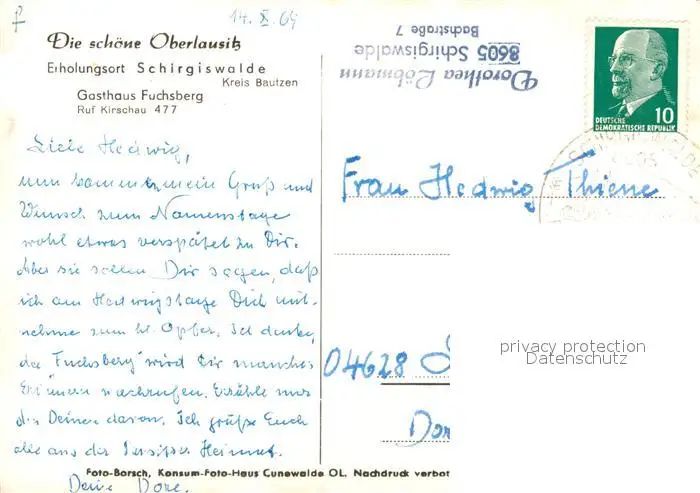 14. X. 69
Die schöne Oberlausitz
Erholungsort Schirgiswalde
Kreis Bautzen
Gasthaus Fuchsberg
Ruf Kirschau 477
Dorothea Löbmann
8605 Schirgiswalde
Bachstraße 7
10
DEUTSCHE
DEMOKRATISCHE REPUBLIK
Liebe Hedwig,
nun kommt mein Gruß und
Wunsch zum Namenstage
wohl etwas verspätet zu Dir.
Aber sie sollen Dir sagen, daß
ich am Hedwigstage Dich mit-
nehme zum hl. Opfer. Ich denke,
der "Fuchsberg" wird Dir manches
Erinnern wachrufen. Erzähle nur
den Deinen davon. Ich grüße Euch
alle aus der Heimat.
Deine Dore.
Frau Hedwig Thiene
04628
privacy protection
Datenschutz
Foto-Borsch, Konsum-Foto-Haus Cunewalde OL. Nachdruck verbot